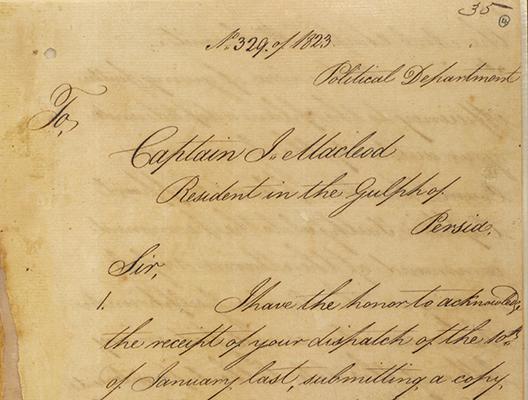 35
No. 329. of 1823
Political Department
To,
Captain J. Macleod
Resident in the Gulph of
Persia.
Sir,
1. I have the honor to acknowledge
the receipt of your dispatch of the 10th
of January last, submitting, a copy,